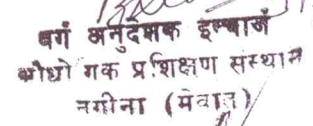 वर्ग अनुदेशक इन्चार्ज
औद्योगिक प्रशिक्षण संस्थान
नगीना (मेवात)